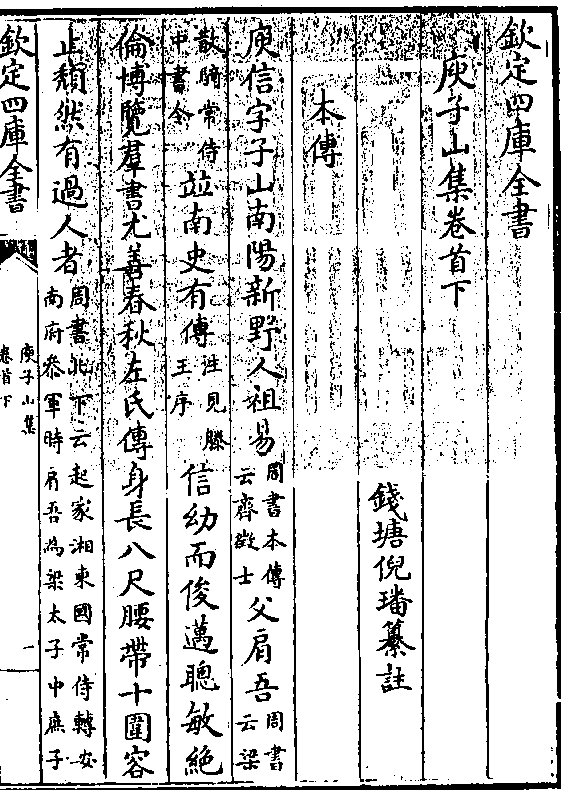 欽定四庫全書
庾子山集卷首下
錢塘倪璠纂註
本傳
庾信字子山南陽新野人祖易周書本傳云齊徵士父肩吾周書云梁
散騎常侍中書令並南史有傳注見滕王序信幼而俊邁聰敏絶
倫博覽羣書尤善春秋左氏傳身長八尺腰帶十圍容
止頽然有過人者周書此下云起家湘東國常侍轉安南府叅軍時肩吾為梁太子中庶子
欽定四庫全書
庾子山集
卷首下
一